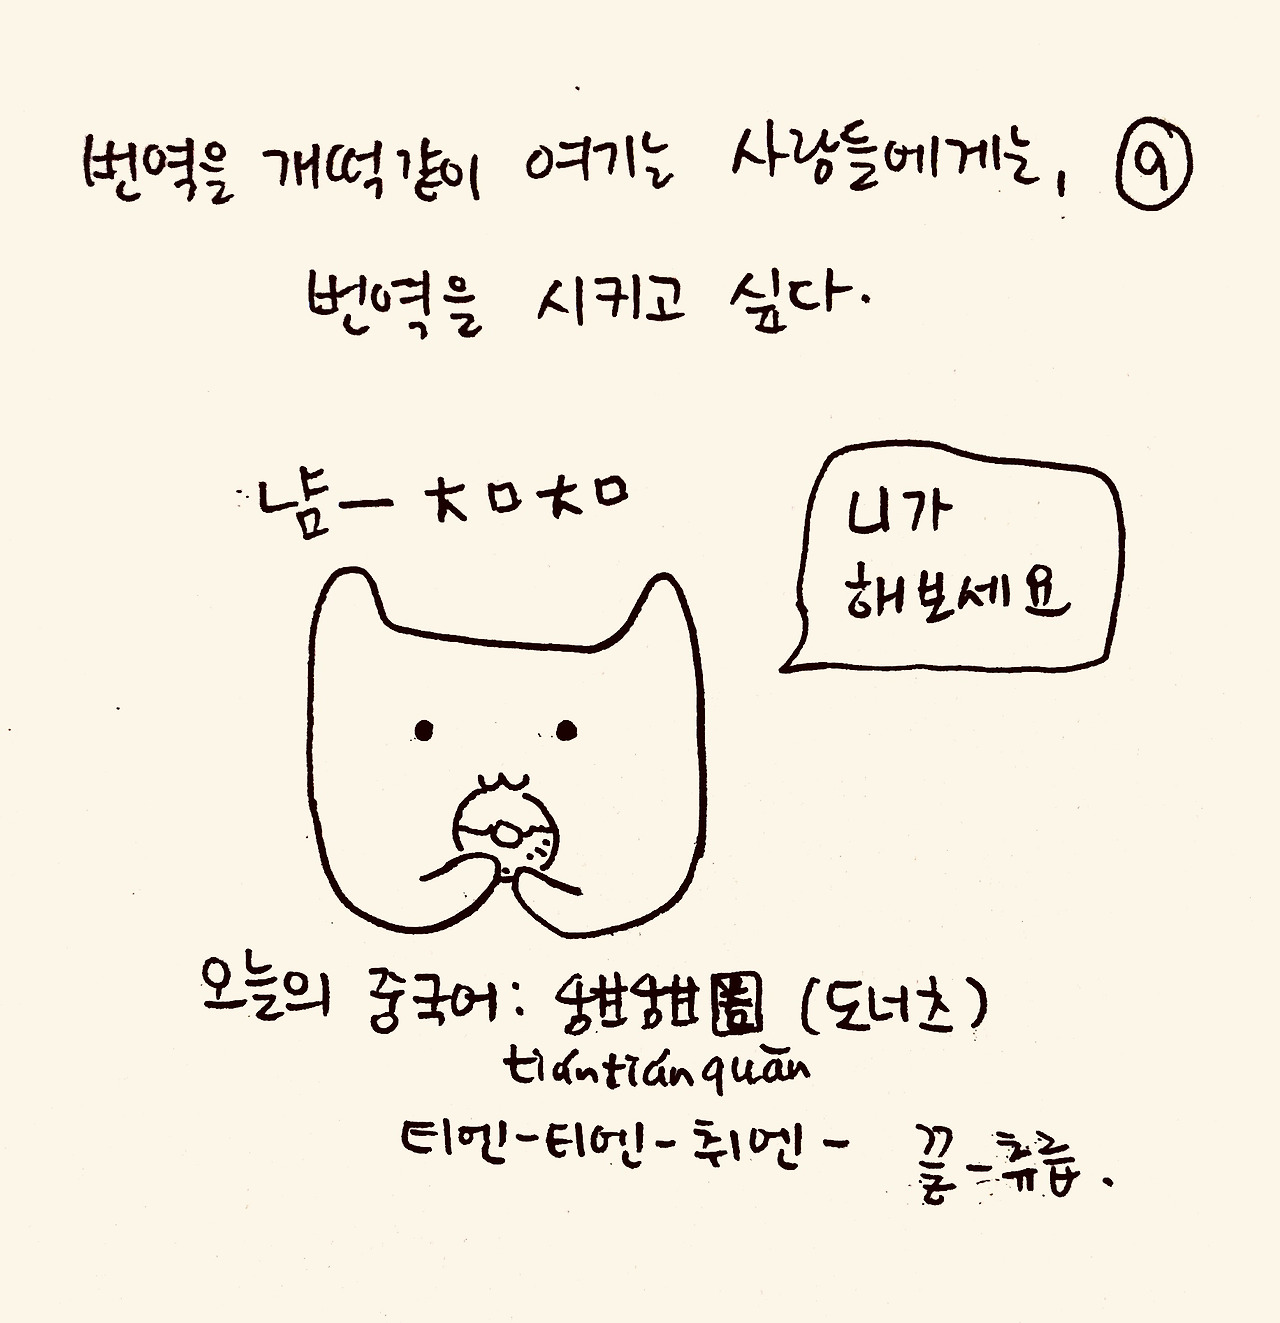 번역을 개떡같이 여기는 사랑들에게는, ⑨
번역을 시키고 싶다.
냠ㅡ ㅊㅁㅊㅁ
니가
해보세요
오늘의 중국어: 甜甜圈 (도너츠)
tiántiánquān
티엔-티엔-취엔-
끝-츄릅.